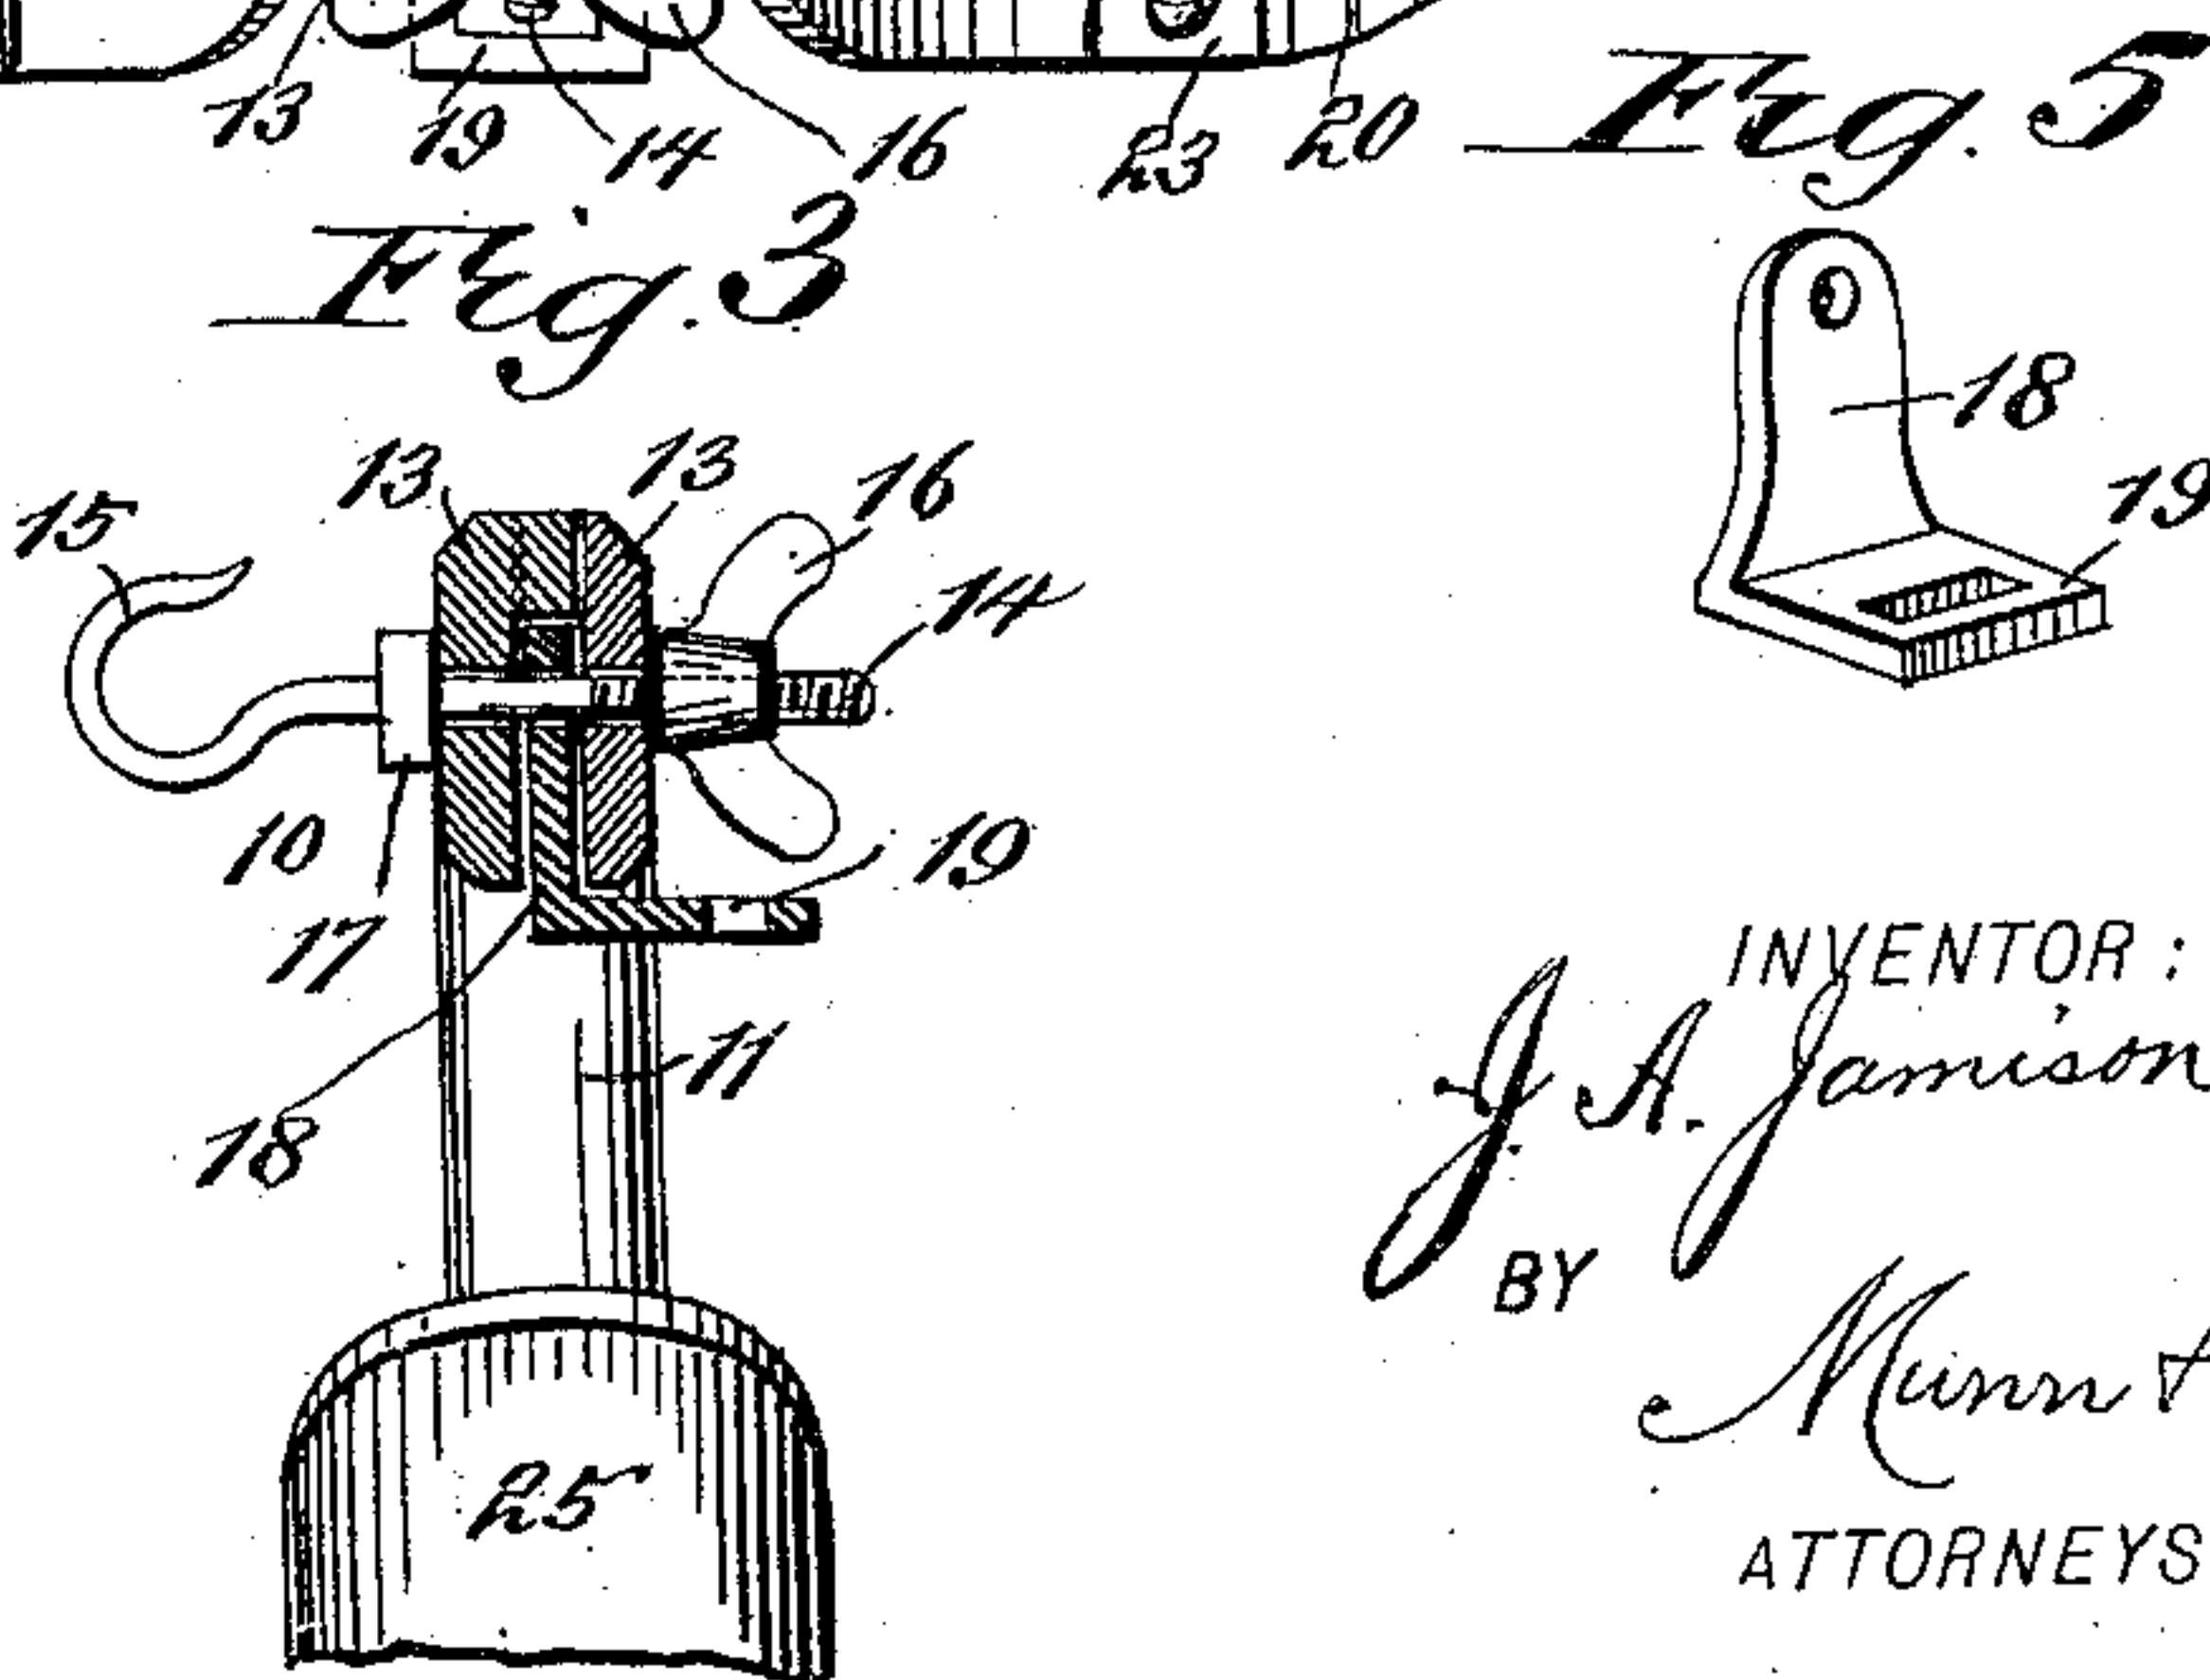 13 19 14 16 23 20
Fig. 5
Fig. 3
18
19
13 13 16
15
14
10
19
17
11
18
25
INVENTOR:
J. A. Jamison
BY
Munn &
ATTORNEYS